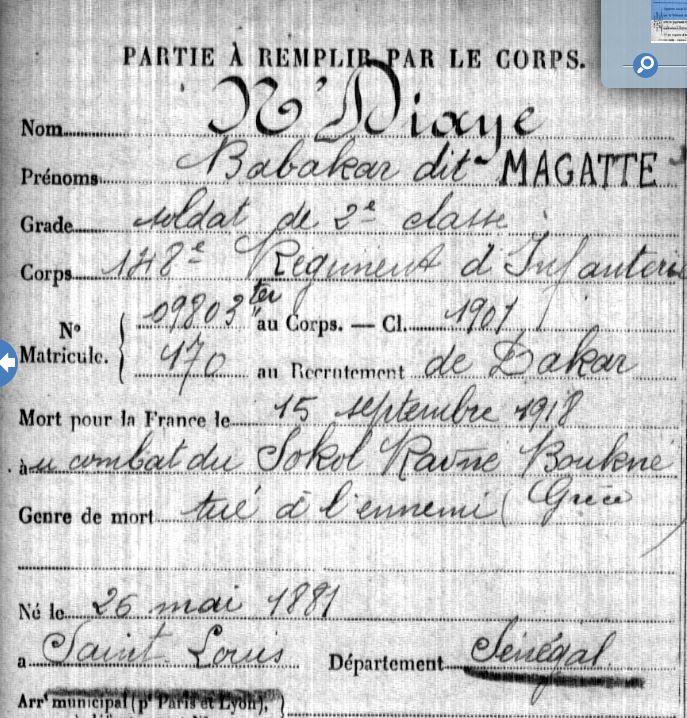 PARTIE À REMPLIR PAR LE CORPS.
Nom N'Diaye
Prénoms Babakar dit MAGATTE
Grade soldat de 2e classe
Corps 148e Régiment d'Infanterie
N° Matricule. { 09803 ter au Corps. — Cl. 1901
170 au Recrutement de Dakar
Mort pour la France le 15 septembre 1918
à au combat du Sokol Ravné Boukné
(Grèce)
Genre de mort tué à l'ennemi
Né le 26 mai 1881
a Saint-Louis Département Sénégal
Arrt municipal (pr Paris et Lyon),